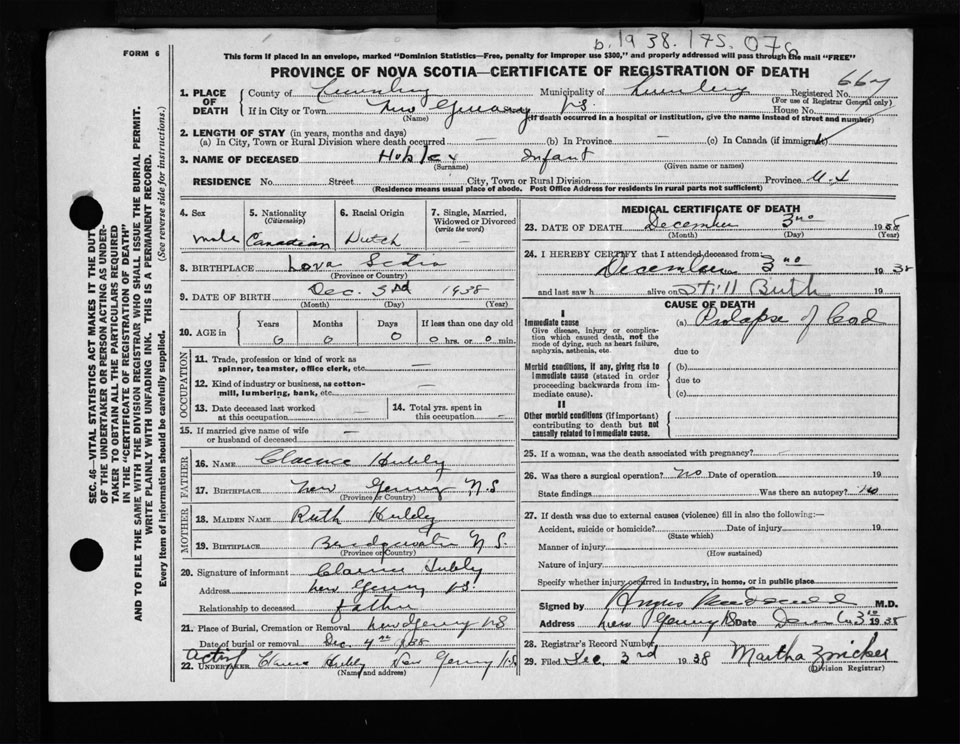 b. 1938. 175. 076
FORM 6
This form if placed in an envelope, marked "Dominion Statistics—Free, penalty for improper use $300," and properly addressed will pass through the mail "FREE"
PROVINCE OF NOVA SCOTIA—CERTIFICATE OF REGISTRATION OF DEATH
667
1. PLACE OF DEATH
County of Lunenburg Municipality of Lunenburg Registered No.
(For use of Registrar General only)
If in City or Town New Germany NS House No.
(Name) (If death occurred in a hospital or institution, give the name instead of street and number)
2. LENGTH OF STAY (in years, months and days)
(a) In City, Town or Rural Division where death occurred — (b) In Province — (c) In Canada (if immigrant)
3. NAME OF DECEASED Infant
(Surname) (Given name or names)
RESIDENCE No. Street City, Town or Rural Division Province
(Residence means usual place of abode. Post Office Address for residents in rural parts not sufficient)
4. Sex male
5. Nationality (Citizenship) Canadian
6. Racial Origin Dutch
7. Single, Married, Widowed or Divorced (write the word) —
8. BIRTHPLACE Nova Scotia
(Province or Country)
9. DATE OF BIRTH Dec. 3rd 1938
(Month) (Day) (Year)
10. AGE in
Years Months Days If less than one day old
0 0 0 0 hrs. or 0 min.
OCCUPATION
11. Trade, profession or kind of work as spinner, teamster, office clerk, etc. —
12. Kind of industry or business, as cotton-mill, lumbering, bank, etc. —
13. Date deceased last worked at this occupation —
14. Total yrs. spent in this occupation —
15. If married give name of wife or husband of deceased —
FATHER
16. NAME Clarence Hubley
17. BIRTHPLACE New Germany N.S
(Province or Country)
MOTHER
18. MAIDEN NAME Ruth Hubley
19. BIRTHPLACE Bridgewater N.S.
(Province or Country)
20. Signature of informant Clarence Hubley
Address New Germany NS.
Relationship to deceased father
21. Place of Burial, Cremation or Removal New Germany NS
Date of burial or removal Dec. 4th 1938
acting
22. UNDERTAKER Clarence Hubley New Germany N.S
(Name and address)
MEDICAL CERTIFICATE OF DEATH
23. DATE OF DEATH December 3rd 1938
(Month) (Day) (Year)
24. I HEREBY CERTIFY that I attended deceased from:
December 3rd 1938
and last saw h alive on Still Birth 19
CAUSE OF DEATH
I
Immediate cause (a) Prolapse of Cord
Give disease, injury or complication which caused death, not the mode of dying, such as heart failure, asphyxia, asthenia, etc.
due to
Morbid conditions, if any, giving rise to immediate cause (stated in order proceeding backwards from immediate cause).
(b)
due to
(c)
II
Other morbid conditions (if important) contributing to death but not causally related to immediate cause.
25. If a woman, was the death associated with pregnancy?
26. Was there a surgical operation? no Date of operation 19
State findings Was there an autopsy? no
27. If death was due to external causes (violence) fill in also the following:—
Accident, suicide or homicide? Date of injury 19
(State which)
Manner of injury
(How sustained)
Nature of injury
Specify whether injury occurred in industry, in home, or in public place
Signed by Angus M.D.
Address New Germany NS Date December 3rd 1938
28. Registrar's Record Number
29. Filed Dec. 3rd 1938 Martha Zwicker
(Division Registrar)
SEC. 46—VITAL STATISTICS ACT MAKES IT THE DUTY
OF THE UNDERTAKER OR PERSON ACTING AS UNDER-
TAKER TO OBTAIN ALL THE PARTICULARS REQUIRED
IN THE "CERTIFICATE OF REGISTRATION OF DEATH"
AND TO FILE THE SAME WITH THE DIVISION REGISTRAR WHO SHALL ISSUE THE BURIAL PERMIT.
WRITE PLAINLY WITH UNFADING INK. THIS IS A PERMANENT RECORD.
Every item of information should be carefully supplied. (See reverse side for instructions.)